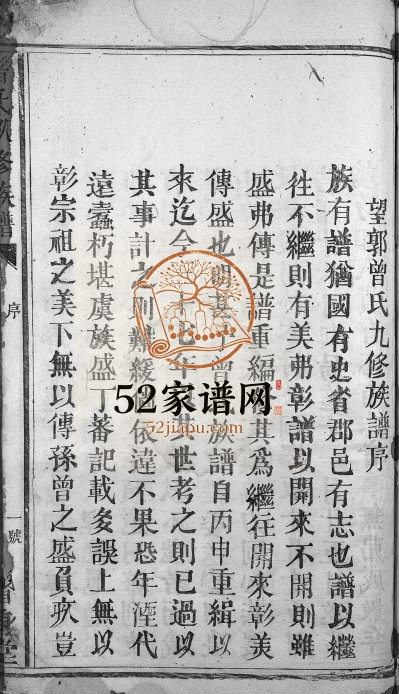 望郭曾氏九修族譜序
族有譜猶國有史省郡邑有志也譜以繼
徃不繼則有美弗彰譜以開來不開則雖
盛弗傳是譜重編其為繼往開來彰美
傳盛也明甚曾氏族譜自丙申重緝以
來迄今年世考之則已過以
其事計之則難緩依違不果恐年湮代
遠蠹朽堪虞族盛丁蕃記載多誤上無以
彰宗祖之美下無以傳孫曾之盛負疚豈
曾氏九修族譜
序
一號
52家谱网
52jiapu.com